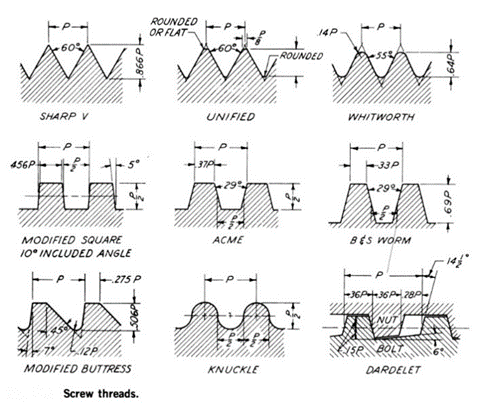 P
60°
.866P
SHARP V
ROUNDED
OR FLAT
P
P/8
60°
ROUNDED
UNIFIED
.14P
P
55°
.64P
WHITWORTH
P
.456P
P/2
5°
MODIFIED SQUARE
10° INCLUDED ANGLE
P
.37P
29°
P/2
P/2
ACME
P
.33P
29°
P/2
.69P
B&S WORM
P
.275P
.506P
45°
7°
.12P
MODIFIED BUTTRESS
P
P/2
P/2
P/2
KNUCKLE
P
14½°
.36P
.36P
.28P
NUT
.15P
BOLT
6°
DARDELET
Screw threads.